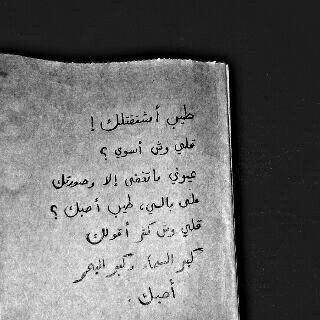 طيب أشتقتلك !
قلي وش أسوي ؟
عيوني ماتغفى إلا وصورتك
على بالي، طيب أحبك ؟
قلي وش كثر أقولك
كبر السماء وكبر البحر
أحبك .